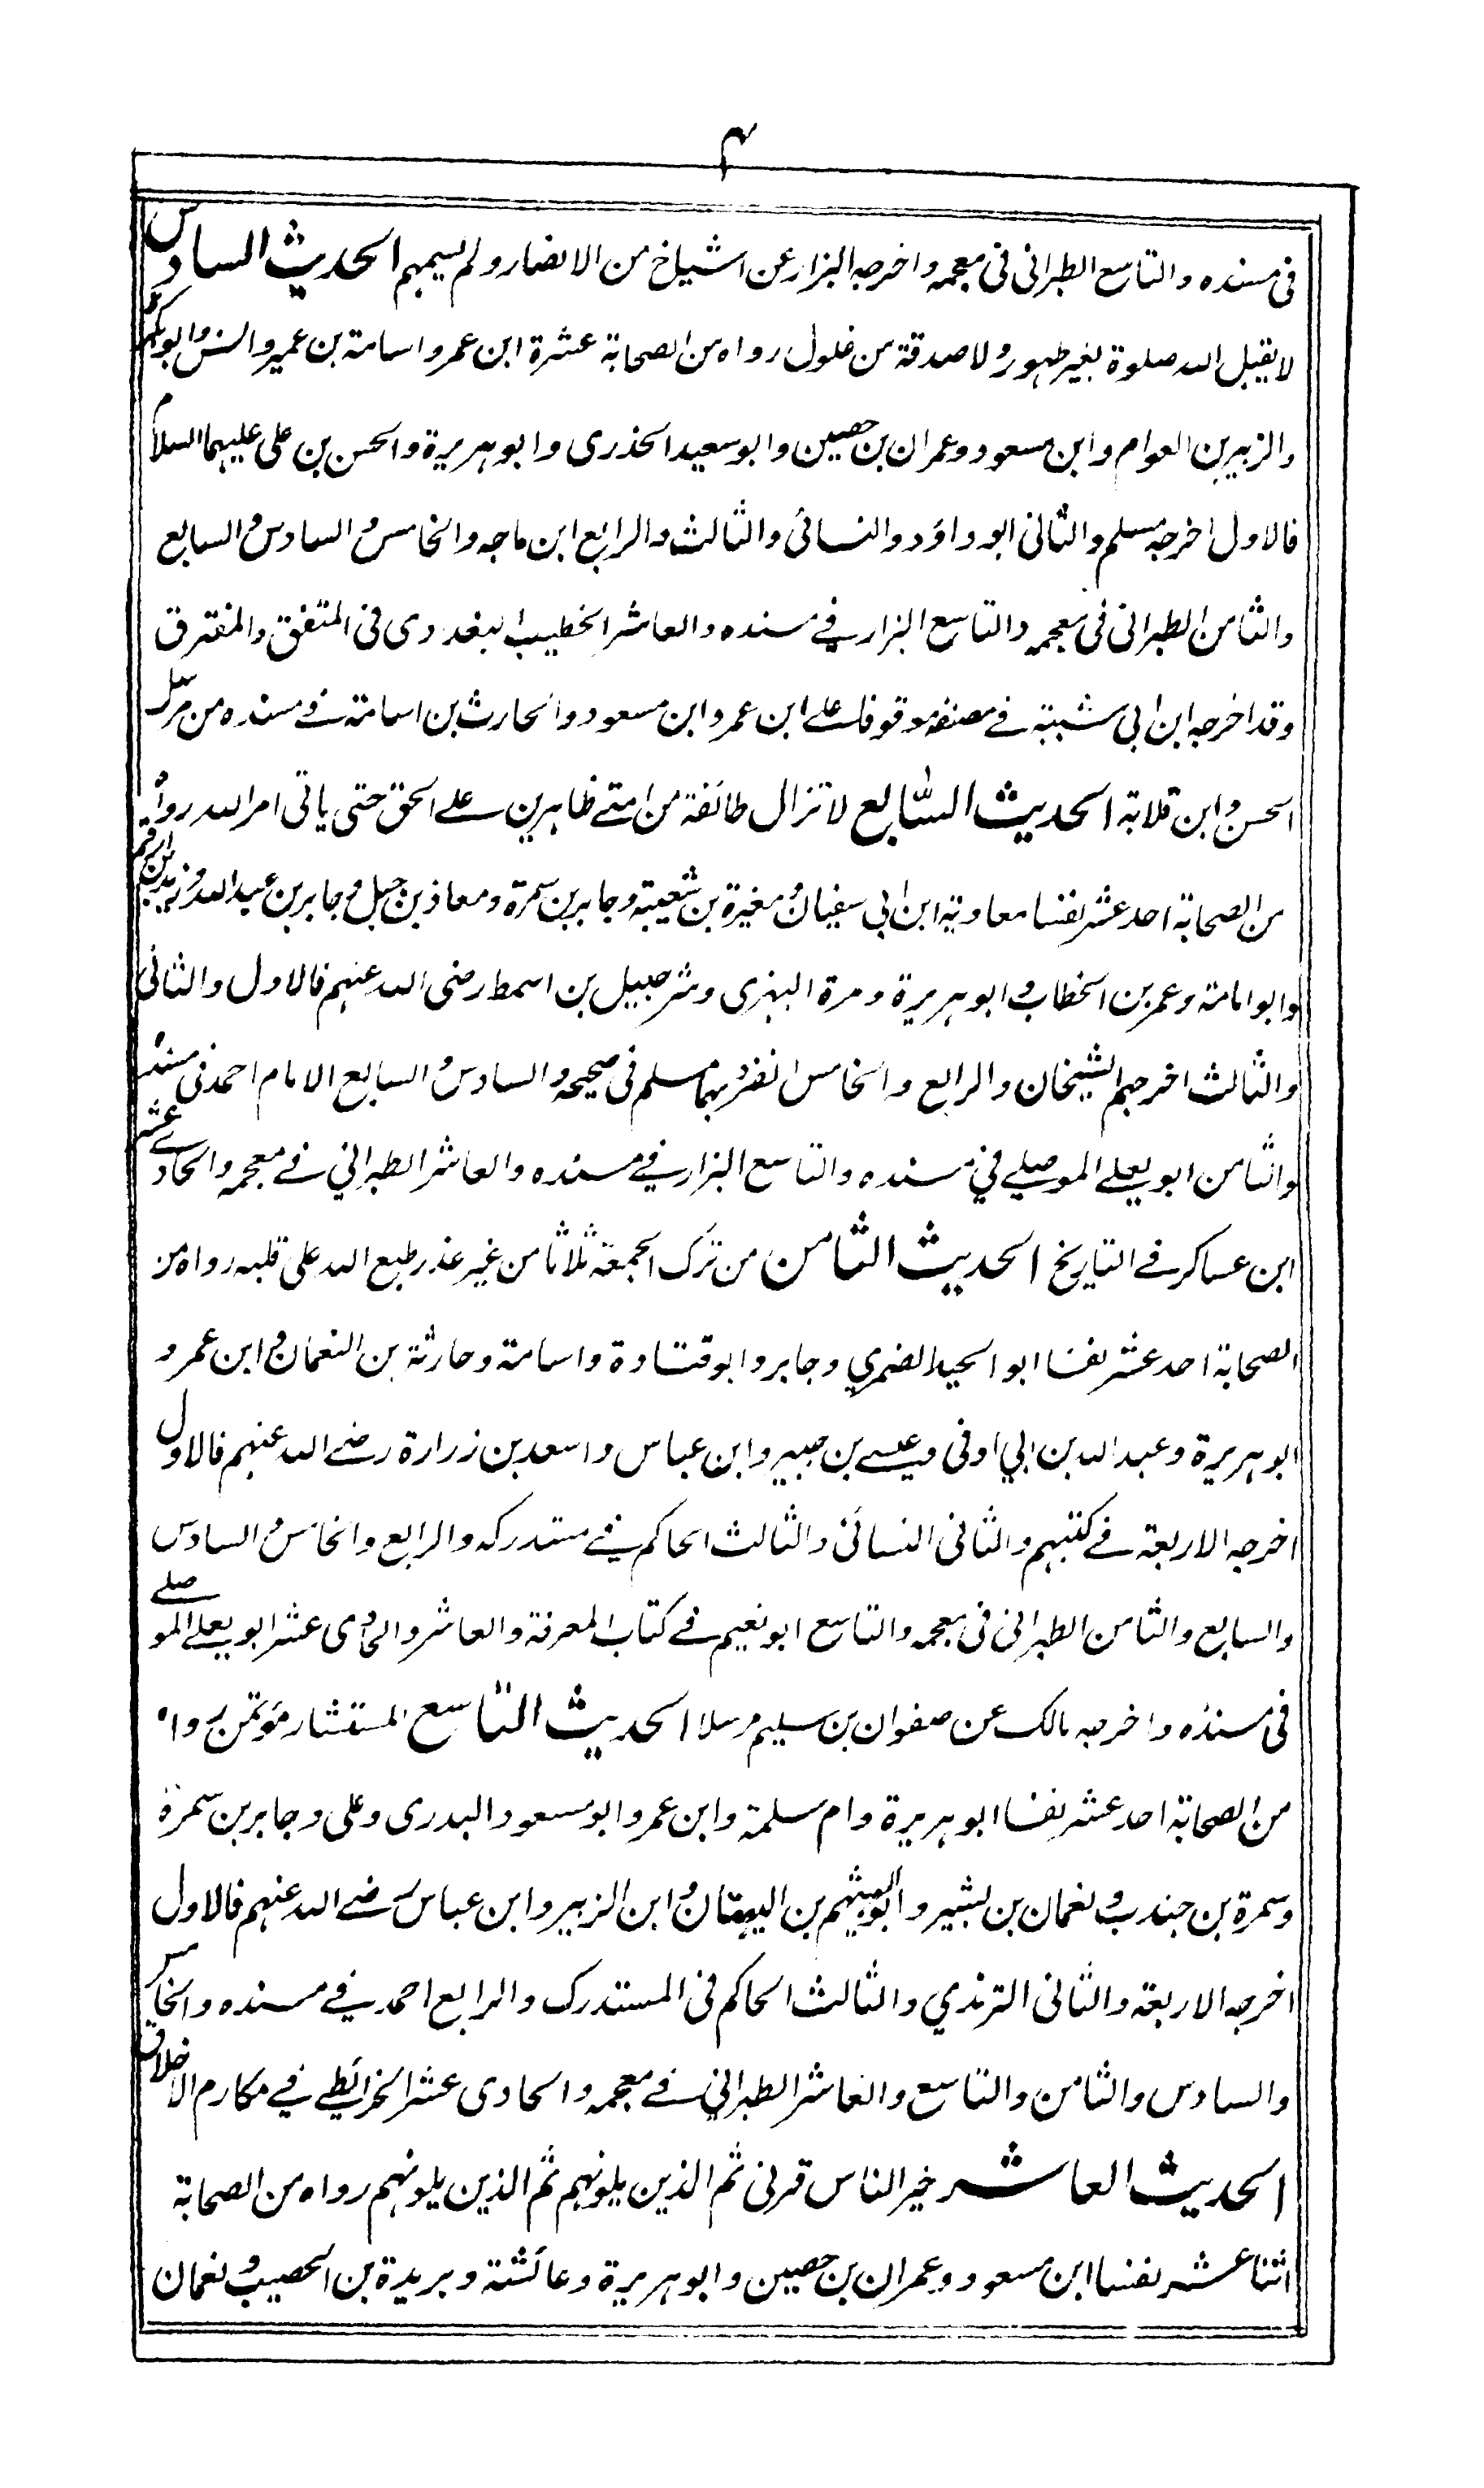 ۴
فى مسنده والتاسع الطبرانى فى معجمه واخرجه البزار عن اشياخ من الانصار ولم يسمهم الحديث السادس
لا يقبل الله صلوة بغير طهور ولا صدقة من غلول رواه من الصحابة عشرة ابن عمر و اسامة بن عمير والنس وابوبكرة
والزبير بن العوام وابن مسعود وعمران بن حصين وابو سعيد الخذرى وابو هريرة والحسن بن على عليهما السلام
فالاول اخرجه مسلم والثانى ابو داؤد والنسائى والثالث والرابع ابن ماجه والخامس والسادس والسابع
والثامن الطبرانى فى معجمه والتاسع البزار في مسنده والعاشر الخطيب البغدادى فى المتفق والمفترق
وقد اخرجه ابن ابى شيبة فے مصنفه موقوفا علے ابن عمر وابن مسعود والحارث بن اسامة فے مسنده من مرسل
الحسن وابن قلابة الحديث السّابع لا تزال طائفة من امتے ظاهرين علے الحق حتى ياتى امر الله رواه
من الصحابة احد عشر نفسا معاوية ابن ابى سفيان ومغيرة بن شعيبة وجابر بن سمرة ومعاذ بن جبل وجابر بن عبد الله وزيد بن ارقم
وابو امامة وعمر بن الخطاب وابو هريرة ومرة البهزى وشرحبيل بن اسمط رضى الله عنهم فالاول والثانى
والثالث اخرجهم الشيخان والرابع والخامس انفرد بهما مسلم فى صحيحه والسادس والسابع الامام احمد فى مسنده
والثامن ابو يعلے الموصلے في مسنده والتاسع البزار في مسنده والعاشر الطبراني فے معجمه والحادے عشر
ابن عساكر فے التاريخ الحديث الثامن من ترك الجمعة ثلاثا من غير عذر طبع الله على قلبه رواه من
الصحابة احد عشر نفسا ابو الجيد الضمري وجابر وابو قتادة واسامة وحارثة بن النعمان وابن عمر و
ابو هريرة وعبد الله بن ابي اوفى وعيسے بن جبير وابن عباس واسعد بن زرارة رضے الله عنهم فالاول
اخرجه الاربعة فے كتبهم والثانى النسائى والثالث الحاكم فے مستدركه والرابع والخامس والسادس
والسابع والثامن الطبرانى فى معجمه والتاسع ابو نعيم فے كتاب المعرفة والعاشر والحادى عشر ابو يعلے الموصلے
فى مسنده واخرجه مالك عن صفوان بن سليم مرسلا الحديث التاسع المستشار مؤتمن رواه
من الصحابة احد عشر نفسا ابو هريرة وام سلمة وابن عمر وابو مسعود البدرى وعلى وجابر بن سمرة
وسمرة بن جندب ونعمان بن بشير و ابو الهيثم بن اليهتان وابن الزبير وابن عباس رضے الله عنهم فالاول
اخرجه الاربعة والثانى الترمذي والثالث الحاكم فى المستدرك والرابع احمد في مسنده والخامس
والسادس والثامن والتاسع والعاشر الطبراني فے معجمه والحادى عشر الخرائطے في مكارم الاخلاق
الحديث العاشر خير الناس قرنى ثم الذين يلونهم ثم الذين يلونهم رواه من الصحابة
اثنا عشر نفسا ابن مسعود وعمران بن حصين وابو هريرة وعائشة وبريدة بن الحصيب ونعمان